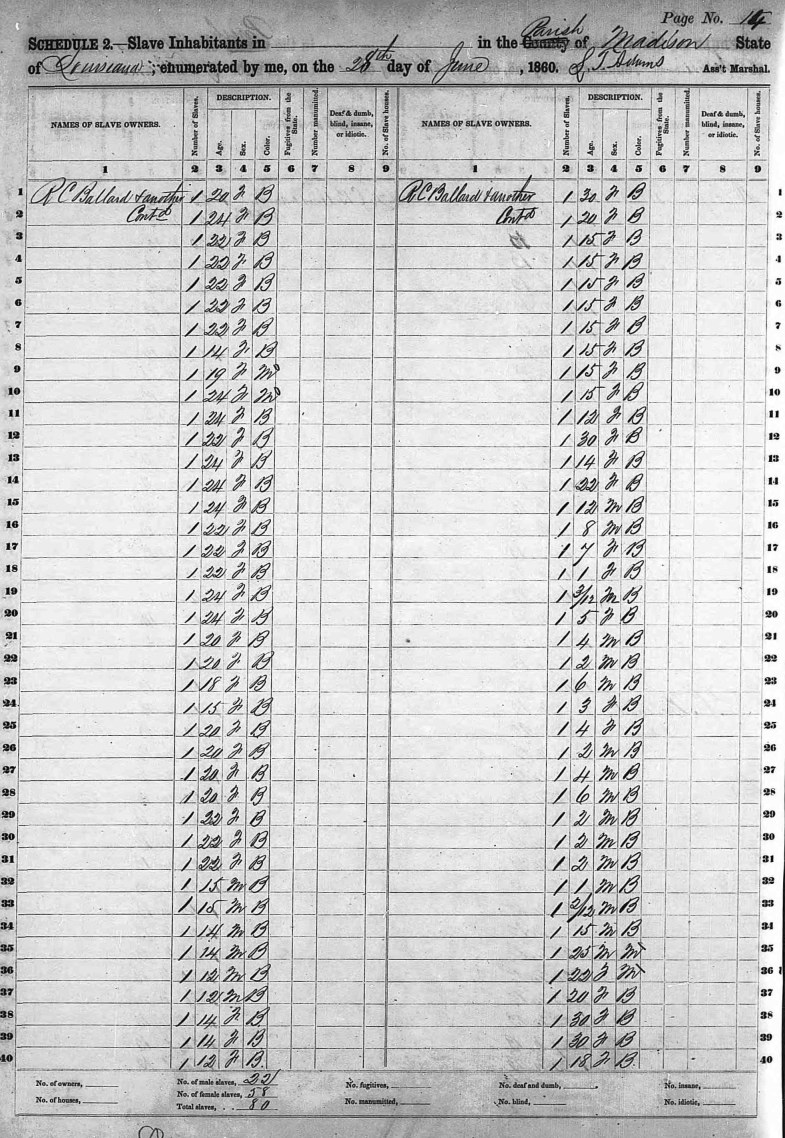 Page No. 14
SCHEDULE 2.—Slave Inhabitants in in the County Parish of Madison State
of Louisiana ; enumerated by me, on the 28th day of June , 1860. S. T. Adams Ass't Marshal.
NAMES OF SLAVE OWNERS. Number of Slaves. DESCRIPTION. Age. Sex. Color. Fugitives from the State. Number manumitted. Deaf & dumb, blind, insane, or idiotic. No. of Slave houses. NAMES OF SLAVE OWNERS. Number of Slaves. DESCRIPTION. Age. Sex. Color. Fugitives from the State. Number manumitted. Deaf & dumb, blind, insane, or idiotic. No. of Slave houses.
1 2 3 4 5 6 7 8 9 1 2 3 4 5 6 7 8 9
1 R C Ballard & another 1 20 F B R C Ballard & another 1 30 F B 1
2 Contd 1 24 F B Contd 1 20 F B 2
3 1 22 F B 1 15 F B 3
4 1 22 F B 1 15 F B 4
5 1 22 F B 1 15 F B 5
6 1 22 F B 1 15 F B 6
7 1 22 F B 1 15 F B 7
8 1 14 F B 1 15 F B 8
9 1 19 F M 1 15 F B 9
10 1 24 F M 1 15 F B 10
11 1 24 F B 1 12 F B 11
12 1 22 F B 1 30 F B 12
13 1 24 F B 1 14 F B 13
14 1 24 F B 1 22 F B 14
15 1 24 F B 1 12 M B 15
16 1 22 F B 1 8 M B 16
17 1 22 F B 1 7 F B 17
18 1 22 F B 1 1 F B 18
19 1 24 F B 1 3/12 M B 19
20 1 24 F B 1 5 F B 20
21 1 20 F B 1 4 M B 21
22 1 20 F B 1 2 M B 22
23 1 18 F B 1 6 M B 23
24 1 15 F B 1 3 F B 24
25 1 20 F B 1 4 F B 25
26 1 20 F B 1 2 M B 26
27 1 20 F B 1 4 M B 27
28 1 20 F B 1 6 M B 28
29 1 22 F B 1 2 M B 29
30 1 22 F B 1 2 M B 30
31 1 22 F B 1 2 M B 31
32 1 15 M B 1 1 M B 32
33 1 15 M B 1 2/12 M B 33
34 1 14 M B 1 15 M B 34
35 1 14 M B 1 25 M M 35
36 1 12 M B 1 22 F M 36
37 1 12 M B 1 20 F B 37
38 1 14 F B 1 30 F B 38
39 1 14 F B 1 30 F B 39
40 1 12 F B 1 18 F B 40
No. of owners, No. of male slaves, 22 No. fugitives, No. deaf and dumb, No. insane,
No. of houses, No. of female slaves, 58 No. manumitted, No. blind, No. idiotic,
Total slaves, 80